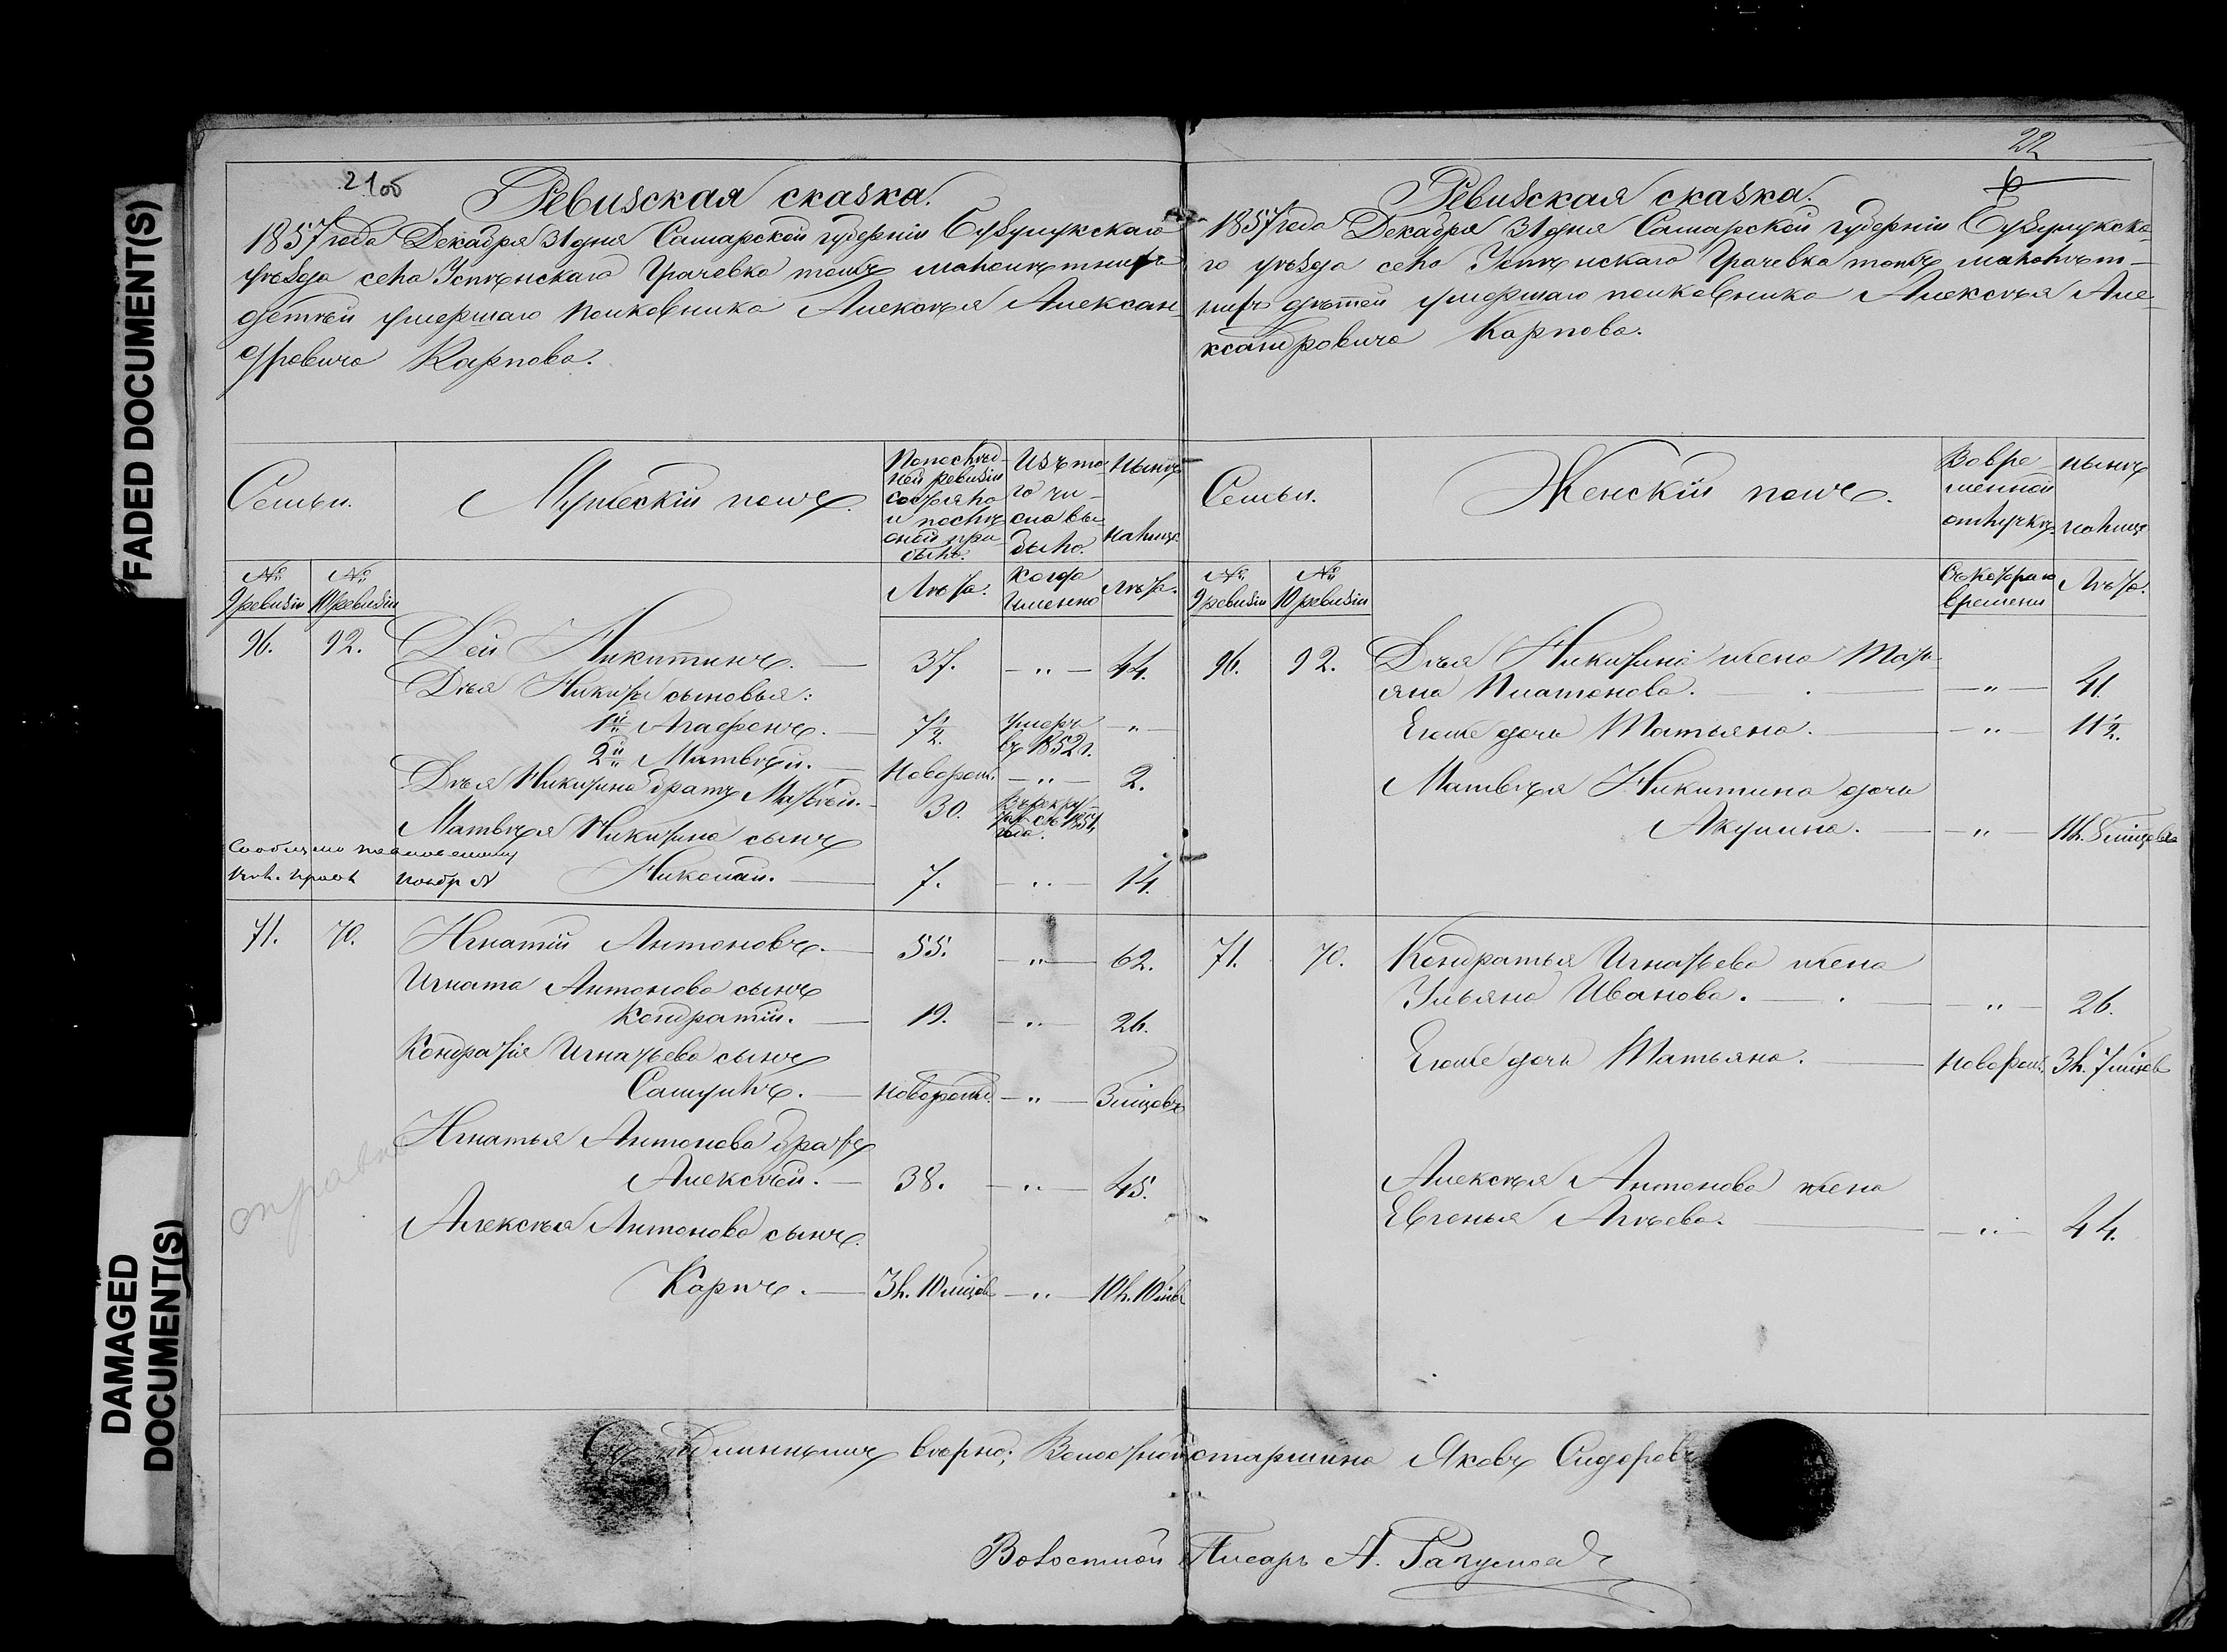 FADED DOCUMENT(S)
DAMAGED
DOCUMENT(S)
21об
Ревизская сказка.
1857 года Декабря 31 дня Самарской губерніи Бузулукскаго
уѣзда села Успѣнскаго Грачевка тожъ малолѣтнихъ
детѣй умершаго полковника Алексѣя Алексан-
дровича Карпова.
Семьи.
Мужескій полъ.
По послѣд-
ней ревизіи
состояло
и послѣ
оной при-
было.
Изъ то-
го чи-
сла вы-
было.
Нынѣ
на лицо.
№
9 ревизіи
№
10 ревизіи
Лѣта.
Когда
именно
Лѣта.
96. 92. Дей Никитинъ. 37. — „ — 44.
Дѣя Никиты сыновья:
1й Агафонъ. 7½. умеръ въ 1852 г. — „ —
2й Матвѣй. Новорож. — „ — 2.
Дѣя Никитина братъ Матвѣй. 30. въ рекру-
тах съ 1851
года.
Матвѣя Никитина сынъ
Николай. 7. — „ — 14.
71. 70. Игнатій Антоновъ. 55. — „ — 62.
Игната Антонова сынъ
Кондратій. 19. — „ — 26.
Кондратія Игнатьева сынъ
Самуилъ. Новорожд. — „ — 3 мцовъ
Игнатья Антонова братъ
Алексѣй. 38. — „ — 45.
Алексѣя Антонова сынъ
Карпъ. 3 л. 10 мцов. — „ — 10 л. 10 мцв
22
Ревизская сказка.
1857 года Декабря 31 дня Самарской губерніи Бузулукска-
го уѣзда села Успѣнскаго Грачевка тожъ малолѣт-
нихъ дѣтей умершаго полковника Алексѣя Але-
ксандровича Карпова.
Семьи.
Женскій полъ.
Во вре-
менной
отлучкѣ.
нынѣ
на лицо
№
9 ревизіи
№
10 ревизіи
Съ котораго
времени
Лѣта.
96. 92. Дѣя Никитина жена Мать-
яна Платонова. — „ — 41.
Егоже дочь Татьяна. — „ — 11½.
Матвѣя Никитина дочь
Акулина. — „ — 11 л. 8 мцовъ
71. 70. Кондратья Игнатьева жена
Ульяна Иванова. — „ — 26.
Егоже дочь Татьяна. новорож. 3 л. 7 мцовъ
Алексѣя Антонова жена
Евгенья Агѣева. — „ — 44.
Съ подлиннымъ вѣрно; Волостной старшина Яковъ Сидоровъ
Волостной Писарь А.